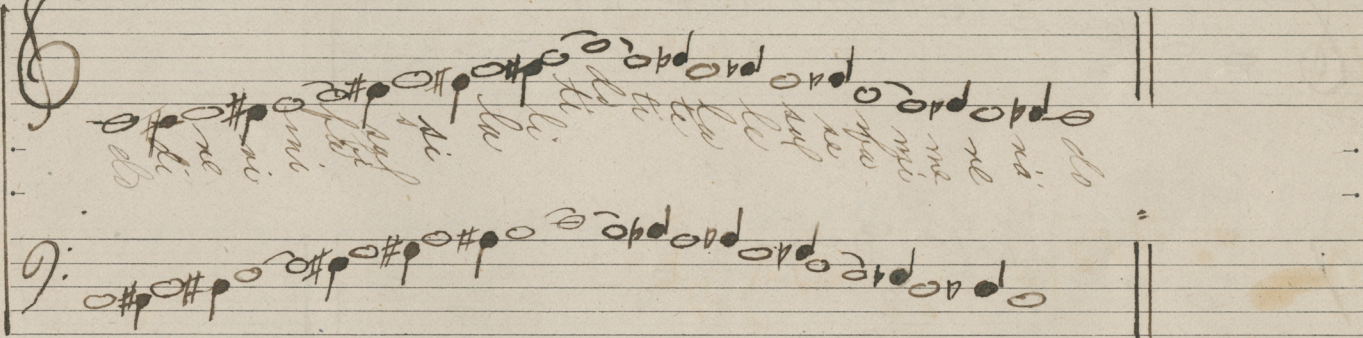 do di re ri mi fa sol si la li ti do ti te la le sol se fa mi me re ra do